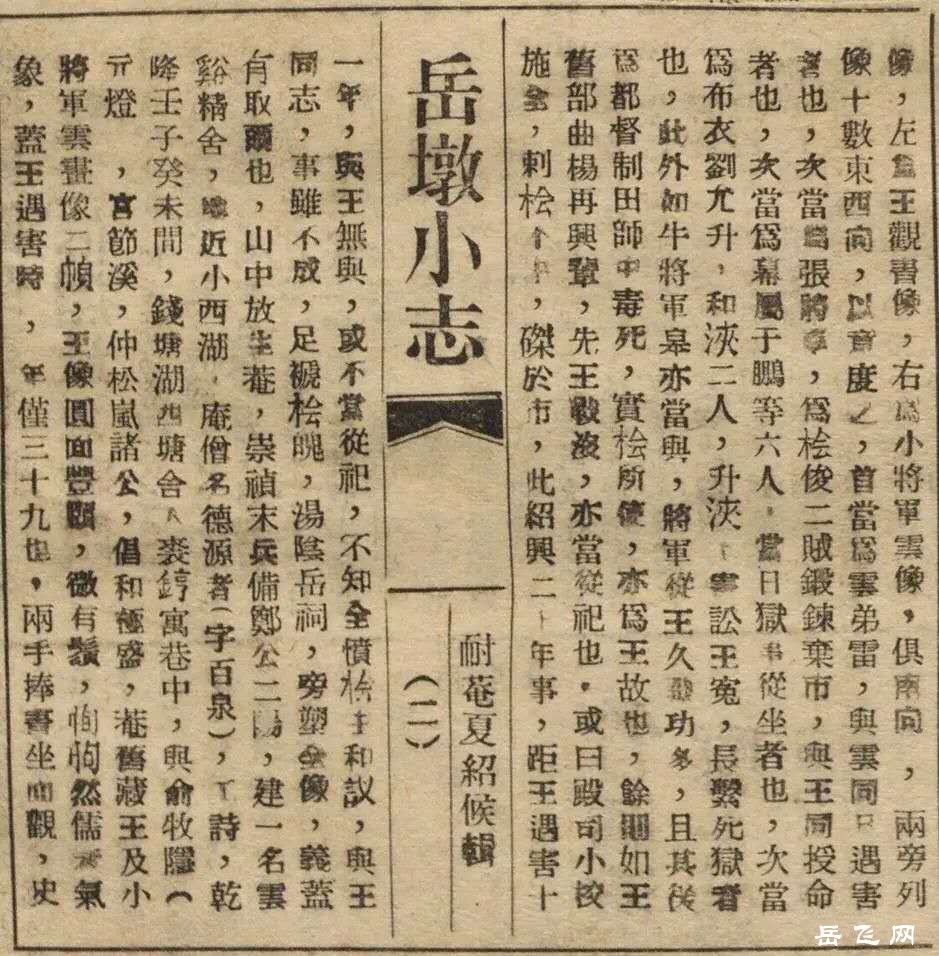 像，左爲王觀書像，右爲小將軍雲像，俱南向，兩旁列
像十數東西向，以意度之，首當爲雲弟雷，與雲同日遇害
者也，次當爲張將軍，爲桧俊二賊鍛鍊棄市，與王同授命
者也，次當爲幕屬于鵬等六人，當日獄事從坐者也，次當
爲布衣劉允升，和浹二人，升浹訟王冤，長繫死獄者
也，此外如牛將軍臯亦當與，將軍從王久功多，且其後
爲都督制田師中毒死，實桧所使，亦爲王故也，餘則如王
舊部曲楊再興輩，先王戰沒，亦當從祀也，或曰殿司小校
施全，刺桧，磔於市，此紹興二十年事，距王遇害十
岳墩小志
耐菴夏紹候輯
（二）
一年，與王無與，或不當從祀，不知全憤桧主和議，與王
同志，事雖不成，足褫桧魄，湯陰岳祠，旁塑全像，義蓋
有取爾也，山中放生菴，崇禎末兵備鄭公二陽，建一名雲
谿精舍，地近小西湖，庵僧名德源者（字百泉），工詩，乾
隆壬子癸未間，錢塘湖西塘舍人裘錞寓巷中，與俞牧隱（
元燈，宮節溪，仲松嵐諸公，倡和極盛，菴舊藏王及小
將軍雲畫像二幀，王像圓面豐頤，微有鬚，恂恂然儒者氣
象，蓋王遇害時，年僅三十九也，兩手捧書坐而觀，史
岳飞网